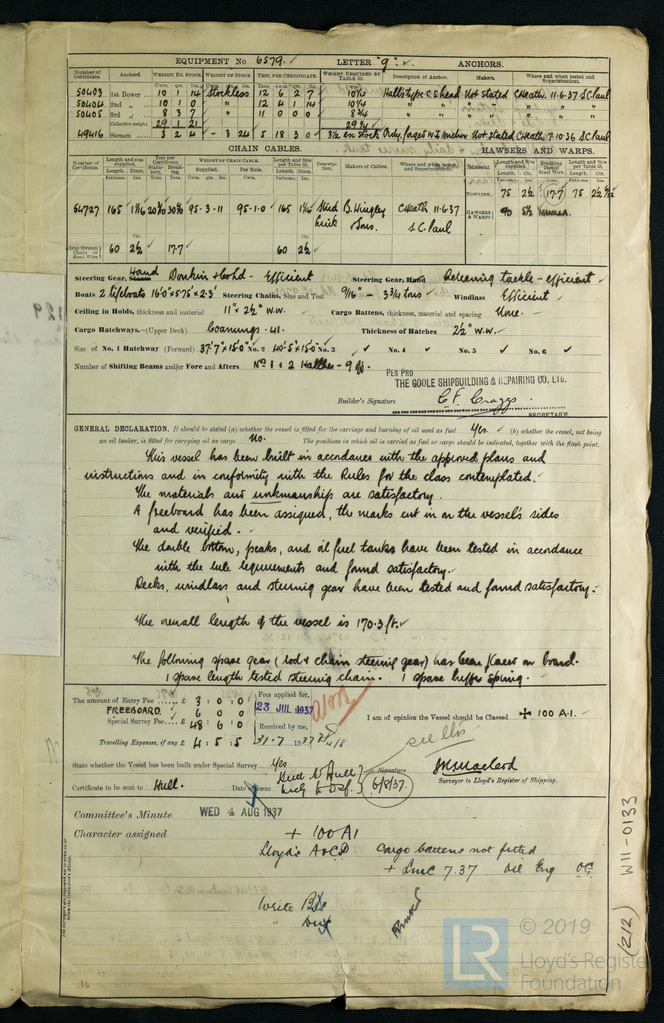 EQUIPMENT No 6579. LETTER "g" ANCHORS.
Number of Certificate. Anchor. WEIGHT, EX. STOCK WEIGHT OF STOCK. TEST, PER CERTIFICATE. WEIGHT REQUIRED BY TABLE 53. Description of Anchor. Makers. Where and when tested and Superintendent.
50403 1st Bower 10 1 14 Stockless 12 6 2 7 10¼ Halls type C.S. head Not stated C Heath. 11-6-37 S.C. Paul
50404 2nd " 10 1 0 " 12 4 1 14 10¼ " " " " "
50405 3rd " 8 3 7 " 11 0 0 0 8¾ " " " " "
Collective weight 29 1 21 29¼
49416 Stream 3 2 4 - 3 24 5 18 3 0 3½ ex stock Ordy. forged W.I. Anchor Not Stated C Heath. 7.10.36 S.C. Paul
CHAIN CABLES. HAWSERS AND WARPS.
Number of Certificate. Length and size supplied. Test per Certificate. WEIGHT OF CHAIN CABLE. Length and size per Table 53. Description. Makers of Cables. Where and when tested, and Superintendent. Material. Length and size supplied. Breaking Test of Steel Wire. Length and size per Table 53.
Fathoms. Diam. Statutory. Breaking. Supplied. Per Rule.
TOWLINE. 75 2½ 17.7 75 2½
54727 165 95-3-11 95-1-0 165 Stud Link B. Hingley & Sons. C Heath 11-6-37 S.C. Paul
HAWSERS & WARPS 90 5½ MANILLA.
Iron Stream Chain or Steel Wire 60 2½ 17.7 60 2½
Steering Gear, Hand Donkin & Co Ld - Efficient Steering Gear, Hand Relieving tackle - efficient
Boats 2 lifeboats 16'0" x 5.75' x 2.3' Steering Chains, Size and Test 9/16" - 3¾ tons Windlass Efficient
Ceiling in Holds, thickness and material 11" x 2½" W.W. Cargo Battens, thickness, material and spacing None.
Cargo Hatchways.-(Upper Deck) Coamings .41. Thickness of Hatches 2½" W.W.
Size of No. 1 Hatchway (Forward) 37'.7" x 15'.0" No. 2 40'.5" x 15'.0" No. 3 No. 4 No. 5 No. 6
Number of Shifting Beams and/or Fore and Afters Nos 1 & 2 Hatches - 9
PER PRO
THE GOOLE SHIPBUILDING & REPAIRING CO. LTD.
Builder's Signature C.F. Craggs
SECRETARY.
GENERAL DECLARATION. It should be stated (a) whether the vessel is fitted for the carriage and burning of oil used as fuel Yes. (b) whether the vessel, not being
an oil tanker, is fitted for carrying oil as cargo No. The positions in which oil is carried as fuel or cargo should be indicated, together with the flash point.
This vessel has been built in accordance with the approved plans and
instructions and in conformity with the Rules for the class contemplated.
The materials and workmanship are satisfactory.
A freeboard has been assigned, the marks cut in on the vessel's sides
and verified.
The double bottom, peaks, and oil fuel tanks have been tested in accordance
with the rule requirements and found satisfactory.
Decks, windlass and steering gear have been tested and found satisfactory.
The overall length of the vessel is 170.3 ft.
The following spare gear (rod & chain steering gear) has been placed on board.
1 spare length tested steering chain. 1 spare buffer spring.
The amount of Entry Fee £ 3 : 0 : 0 Fees applied for,
FREEBOARD 6 0 0 23 JUL 1937
Special Survey Fee £ 48 : 6 : 0 Received by me,
Travelling Expenses, if any £ 4 : 5 : 5 31-7 1937
I am of opinion the Vessel should be Classed ✠ 100 A.1.
State whether the Vessel has been built under Special Survey Yes
Signature J.M. Macleod
Surveyor to Lloyd's Register of Shipping.
Certificate to be sent to Hull. Date of issue 6/8/37
Committee's Minute WED 4 AUG 1937
Character assigned + 100 A1
Lloyd's A & CP Cargo battens not fitted
+ LMC 7.37 Oil Eng O.G.
Write
W11-0133
(2/2)
LR
© 2019
Lloyd's Register
Foundation